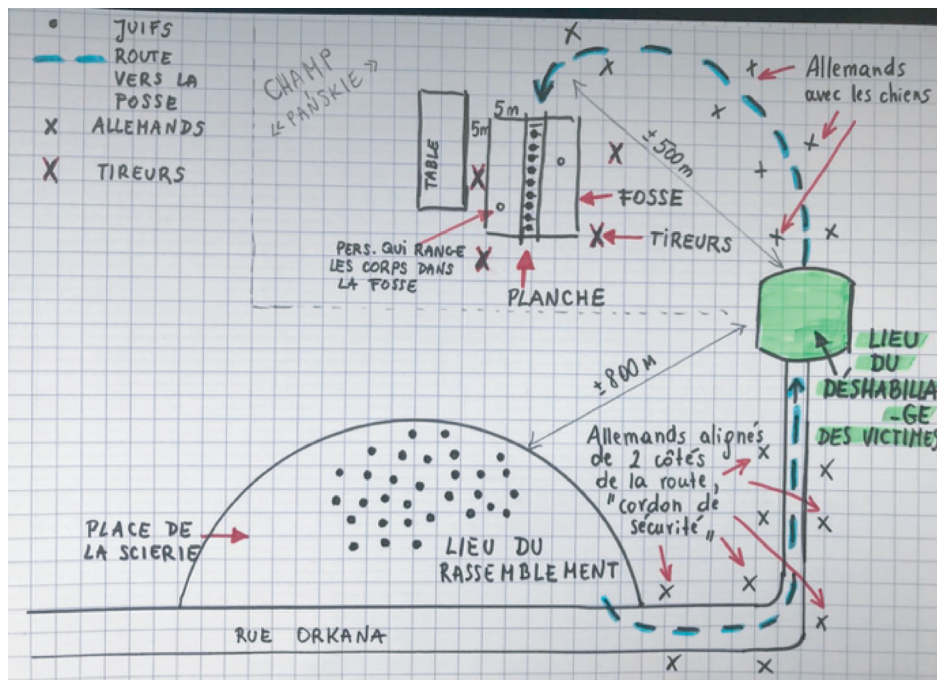 JUIFS
ROUTE
VERS LA
FOSSE
X ALLEMANDS
X TIREURS
CHAMP
"PAŃSKIE"
TABLE
5m
5m
± 500 m
Allemands
avec les chiens
FOSSE
TIREURS
PERS. QUI RANGE
LES CORPS DANS
LA FOSSE
PLANCHE
LIEU
DU
DÉSHABILLA
-GE
DES VICTIMES
± 800 M
Allemands alignés
de 2 côtés
de la route,
"cordon de
sécurité"
PLACE DE
LA SCIERIE
LIEU DU
RASSEMBLEMENT
RUE ORKANA